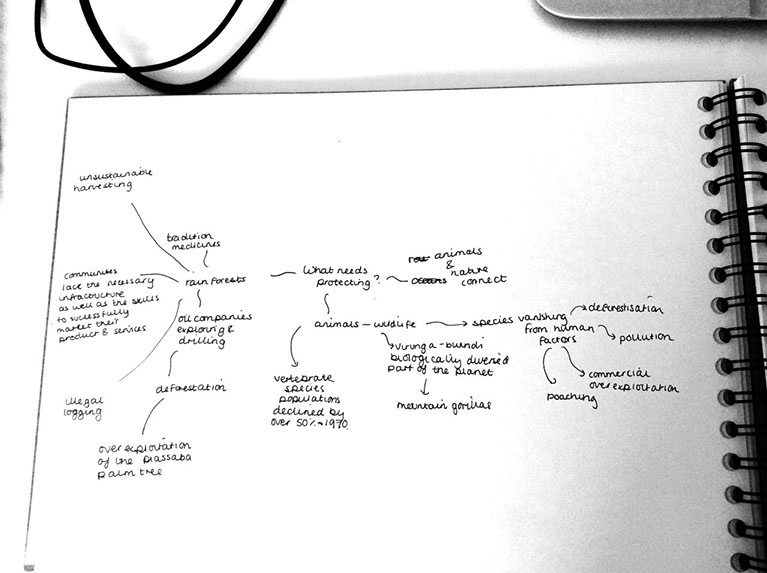 unsustainable
harvesting
tradition
medicines
communities
lack the necessary
infrastructure
as well as the skills
to successfully
market their
product & services
rainforests
oil companies
exploring &
drilling
illegal
logging
deforestation
over exploitation
of the piassaba
palm tree
What needs
protecting?
animals
&
nature
connect
animals - wildlife
species vanishing
from human
factors
deforestisation
pollution
commercial
over exploitation
poaching
virunga - bundi
biologically diversed
part of the planet
mountain gorillas
vertebrate
species
populations
declined by
over 50% 1970